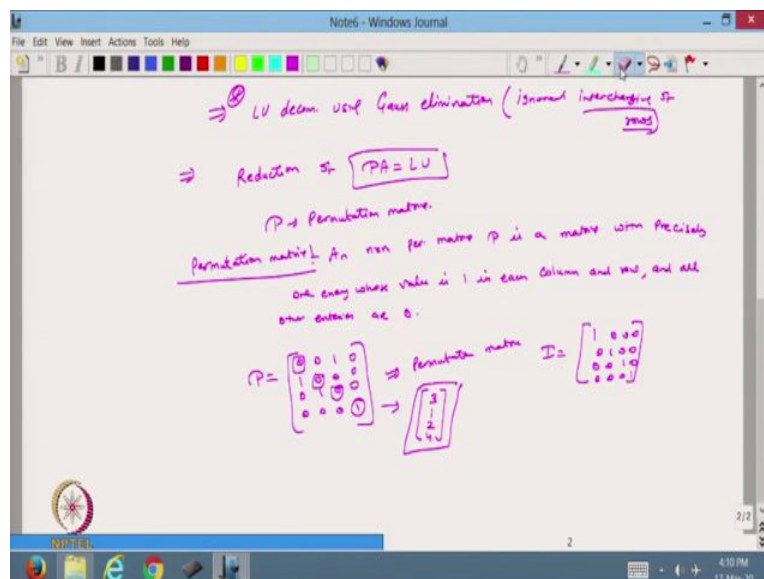 Note6 - Windows Journal
File Edit View Insert Actions Tools Help
⇒ ⊛ LU decom. using Gauss elimination (ignored interchanging of
rows)
⇒ Reduction of PA = LU
P → Permutation matrix.
Permutation matrix! An n×n per. matrix P is a matrix with precisely
one entry whose value is 1 in each column and row, and all
other entries are 0.
P = [0 0 1 0 ⇒ Permutation matrix I = [1 0 0 0
1 0 0 0 0 1 0 0
0 1 0 0 0 0 1 0
0 0 0 1] → [3 1 2 4] 0 0 0 1]
NPTEL
2
2/2
4:10 PM